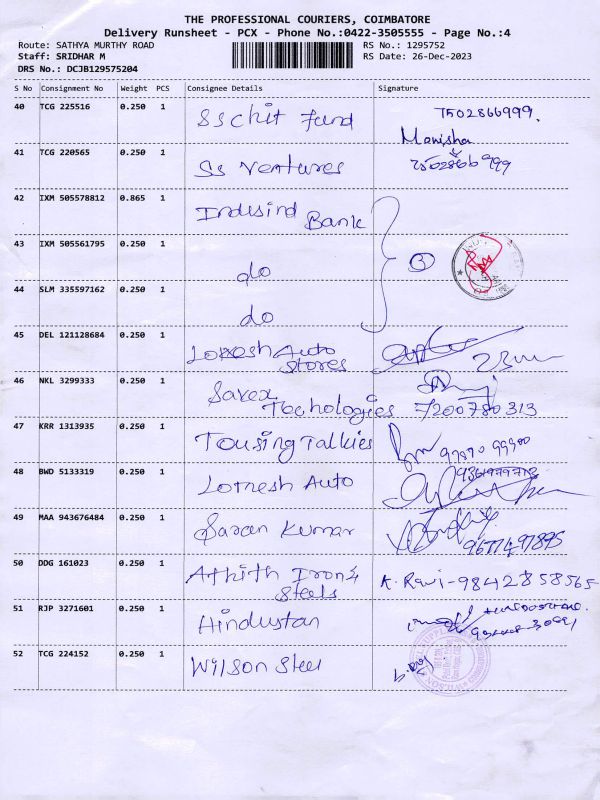 THE PROFESSIONAL COURIERS, COIMBATORE
Delivery Runsheet - PCX - Phone No.:0422-3505555 - Page No.:4
Route: SATHYA MURTHY ROAD RS No.: 1295752
Staff: SRIDHAR M RS Date: 26-Dec-2023
DRS No.: DCJB129575204
S No Consignment No Weight PCS Consignee Details Signature
40 TCG 225516 0.250 1 SS Chit Fund 7502866999.
Monisha
41 TCG 220565 0.250 1 SS Ventures 7502866999
42 IXM 505578812 0.865 1 Indusind Bank
43 IXM 505561795 0.250 1 do 3
44 SLM 335597162 0.250 1 do
45 DEL 121128684 0.250 1 Lokesh Auto
Stores
46 NKL 3299333 0.250 1 Savex
Techologies 7200780313
47 KRR 1313935 0.250 1 Tousing Talkies 97870 99900
48 BWD 5133319 0.250 1 Lokesh Auto
49 MAA 943676484 0.250 1 Saran Kumar 9677497895
50 DDG 161023 0.250 1 Athith Iron &
Steels K. Ravi - 9842858565
51 RJP 3271601 0.250 1 Hindustan
52 TCG 224152 0.250 1 Wilson Steel